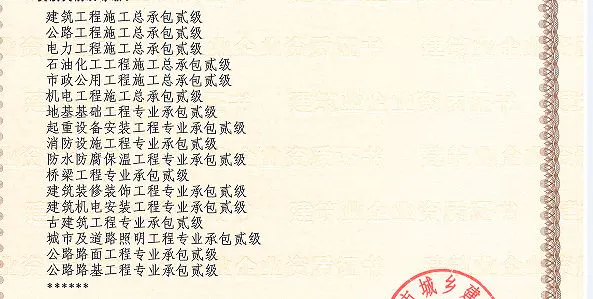 建筑工程施工总承包贰级
公路工程施工总承包贰级
电力工程施工总承包贰级
石油化工工程施工总承包贰级
市政公用工程施工总承包贰级
机电工程施工总承包贰级
地基基础工程专业承包贰级
起重设备安装工程专业承包贰级
消防设施工程专业承包贰级
防水防腐保温工程专业承包贰级
桥梁工程专业承包贰级
建筑装修装饰工程专业承包贰级
建筑机电安装工程专业承包贰级
古建筑工程专业承包贰级
城市及道路照明工程专业承包贰级
公路路面工程专业承包贰级
公路路基工程专业承包贰级
******
城乡建